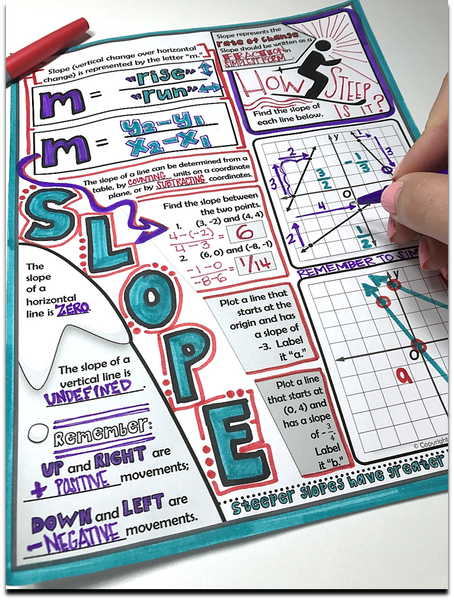 Slope (vertical change over horizontal
change) is represented by the letter "m".
m = "rise"
"run"
m = y₂-y₁
x₂-x₁
The slope of a line can be determined from a
table, by COUNTING units on a coordinate
plane, or by SUBTRACTING coordinates.
SLOPE
Find the slope between
the two points.
1. (3, -2) and (4, 4)
4-(-2) = 6
4-3
2. (6, 0) and (-8, -1)
-1-0 = 1/14
-8-6
The
slope
of a
horizontal
line is ZERO.
The slope of a
vertical line is
UNDEFINED.
Remember:
UP and RIGHT are
+ POSITIVE movements;
DOWN and LEFT are
- NEGATIVE movements.
Slope represents the
Rate of Change
Slope should be written as a
FRACTION in
SIMPLEST FORM
HOW STEEP
IS IT?
Find the slope of
each line below.
2
3
3
1
-1/3
x
y
0
4
2
1/2
REMEMBER TO
Plot a line that
starts at the
origin and has
a slope of
-3. Label
it "a."
Plot a line
that starts
at (0, 4) and
has a slope
of -3/4.
Label
it "b."
y
0
a
© Copyright
steeper slopes have greater